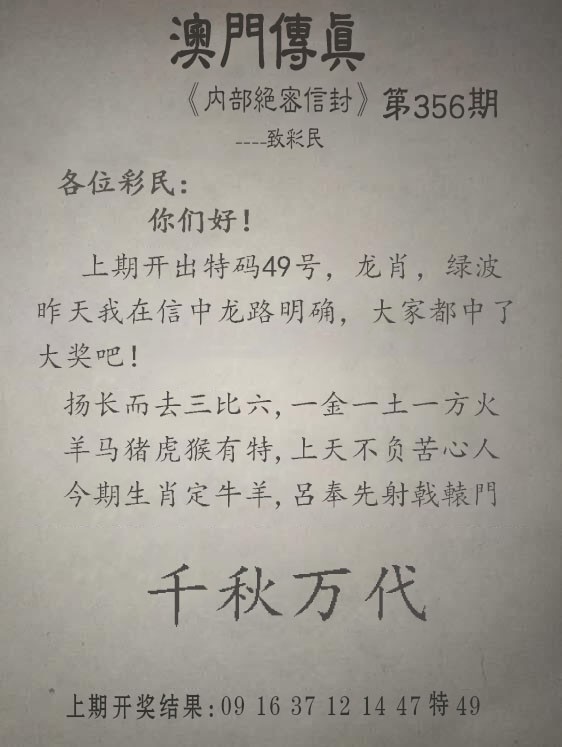 澳門傳眞
《内部絕密信封》第356期
----致彩民
各位彩民：
你们好！
上期开出特码49号，龙肖，绿波
昨天我在信中龙路明确，大家都中了
大奖吧！
扬长而去三比六,一金一土一方火
羊马猪虎猴有特,上天不负苦心人
今期生肖定牛羊,吕奉先射戟轅門
千秋万代
上期开奖结果:09 16 37 12 14 47特49